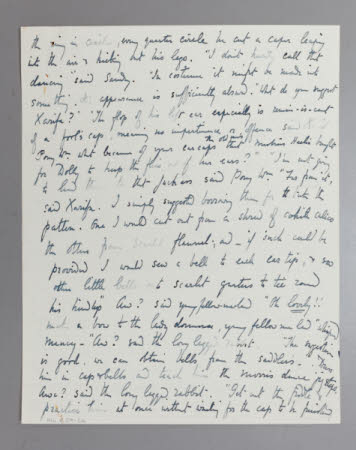 the ring in circles, every quarter circle he cut a caper leaping
into the air & kicking out his legs. "I don't hardly call that
dancing" said Sandy. "In costume it might be made into
something, his appearance is sufficiently absurd. What do you suggest
Xarifa?" "The flop of his left ear especially is remin-is-cent
of a fool's cap, meaning no impertinence or offence said
Pony Wm. what became of your earcaps the old mistress Heelis bought
for Dolly to keep the flies out of her ears?" "I'm not going
to lend to that Jackass" said Pony Wm "Far from it",
said Xarifa. I simply suggested borrowing them for to take the
pattern. One I would cut out from a shred of white calico
the other from scarlet flannel; and if such could be
provided I would sew a bell to each ear tip, & sew
other little bells to scarlet garters to tie round
his hindlegs" Aw? said young fellow me lad "Oh lovely!!
a bow to the lady dormouse, young fellow me lad
Aw? said the long legged rabbit. "The suggestion
is good, we can obtain bells from the saddlers. Dress
him in cap & bells and teach him the morris dance
Aw? said the long legged rabbit. "Get out the fiddle &
practise him at once without waiting for the cap to be finished